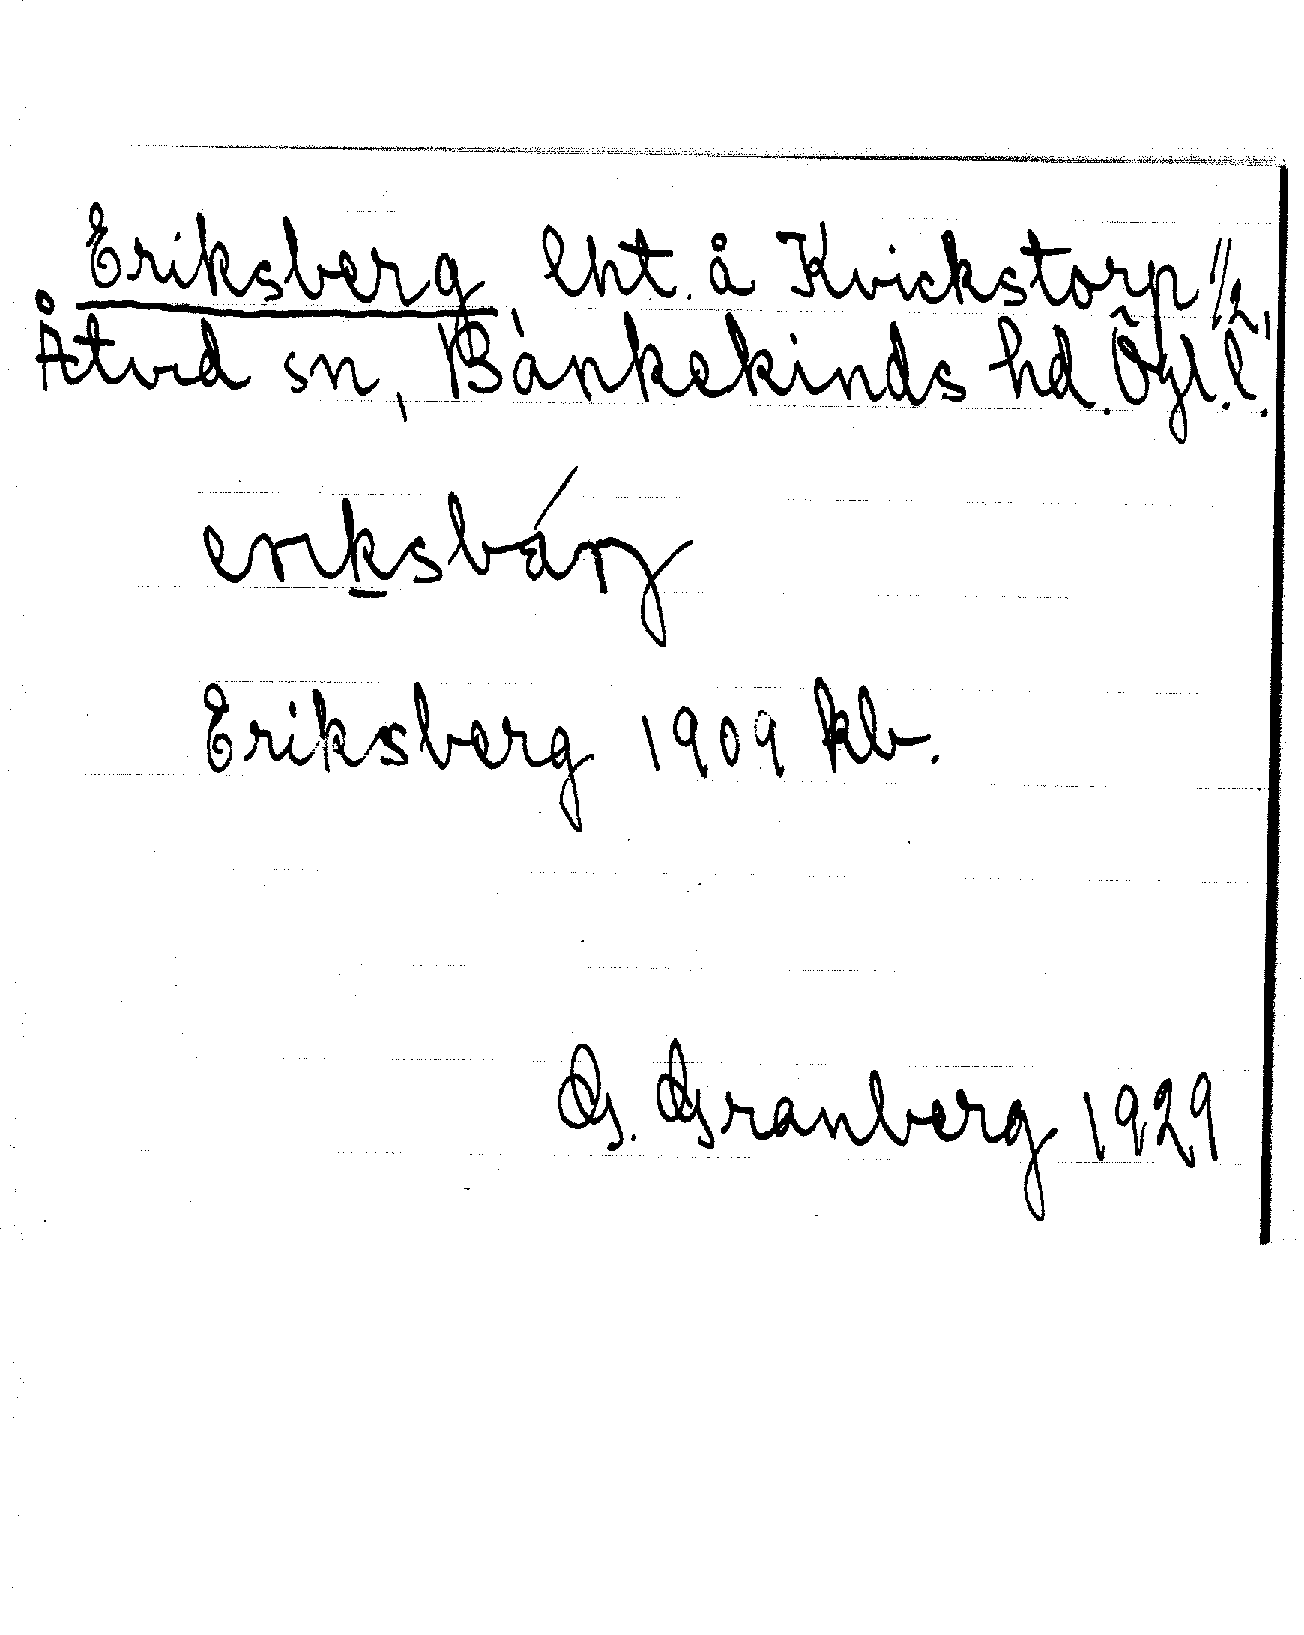 Eriksberg, lht. å Kvickstorp 1/2,
Åtvid sn, Bankekinds hd. Ögl. l.
eriksbárg
Eriksberg 1909 kb.
G. Granberg 1929